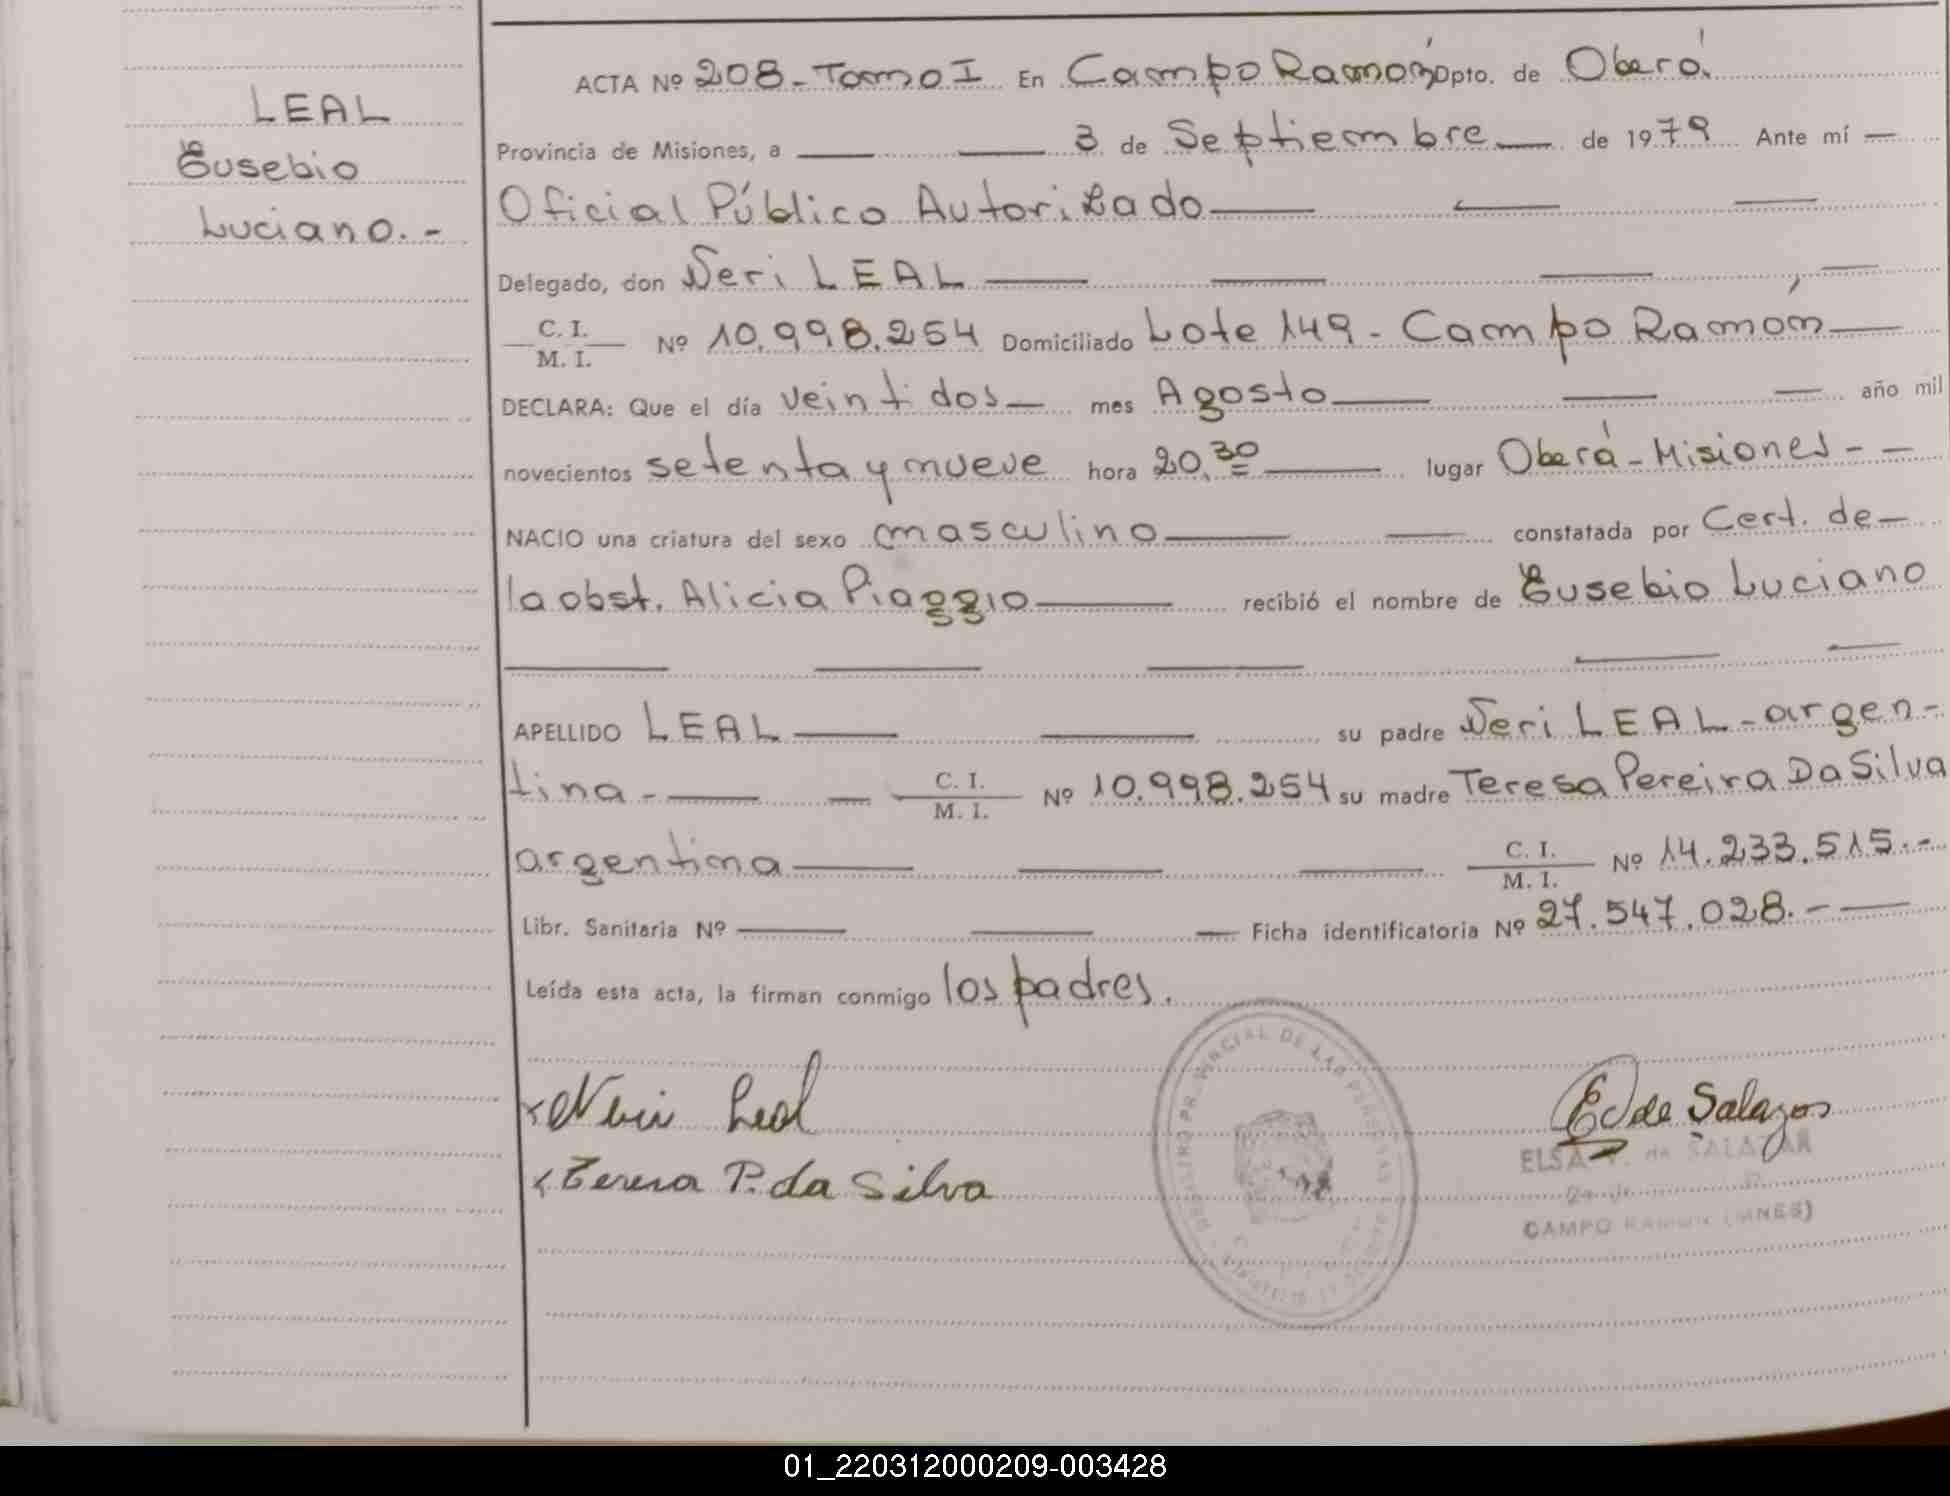 LEAL
Eusebio
Luciano. -
ACTA Nº 208 - Tomo I En Campo Ramón Dpto. de Oberá
Provincia de Misiones, a — — 3 de Septiembre — de 1979 Ante mí —
Oficial Público Autorizado — — —
Delegado, don Neri LEAL — — — —
C. I.
M. I. Nº 10.998.254 Domiciliado Lote 149 - Campo Ramón —
DECLARA: Que el día veintidos — mes Agosto — — — año mil
novecientos setenta y nueve hora 20,30 — lugar Oberá - Misiones - —
NACIO una criatura del sexo masculino — — constatada por Cert. de —
la obst. Alicia Piaggio — recibió el nombre de Eusebio Luciano
— — — — —
APELLIDO LEAL — — su padre Neri LEAL - argen-
tina - — — C. I.
M. I. Nº 10.998.254 su madre Teresa Pereira Da Silva
argentina — — — C. I.
M. I. Nº 14.233.515. -
Libr. Sanitaria Nº — — — Ficha identificatoria Nº 27.547.028. - —
Leída esta acta, la firman conmigo los padres.
x Neri Leal
x Teresa P. da Silva
E de Salazar
ELSA de SALAZAR
CAMPO RAMON (MNES)
DE LAS PERSONAS
01_220312000209-003428